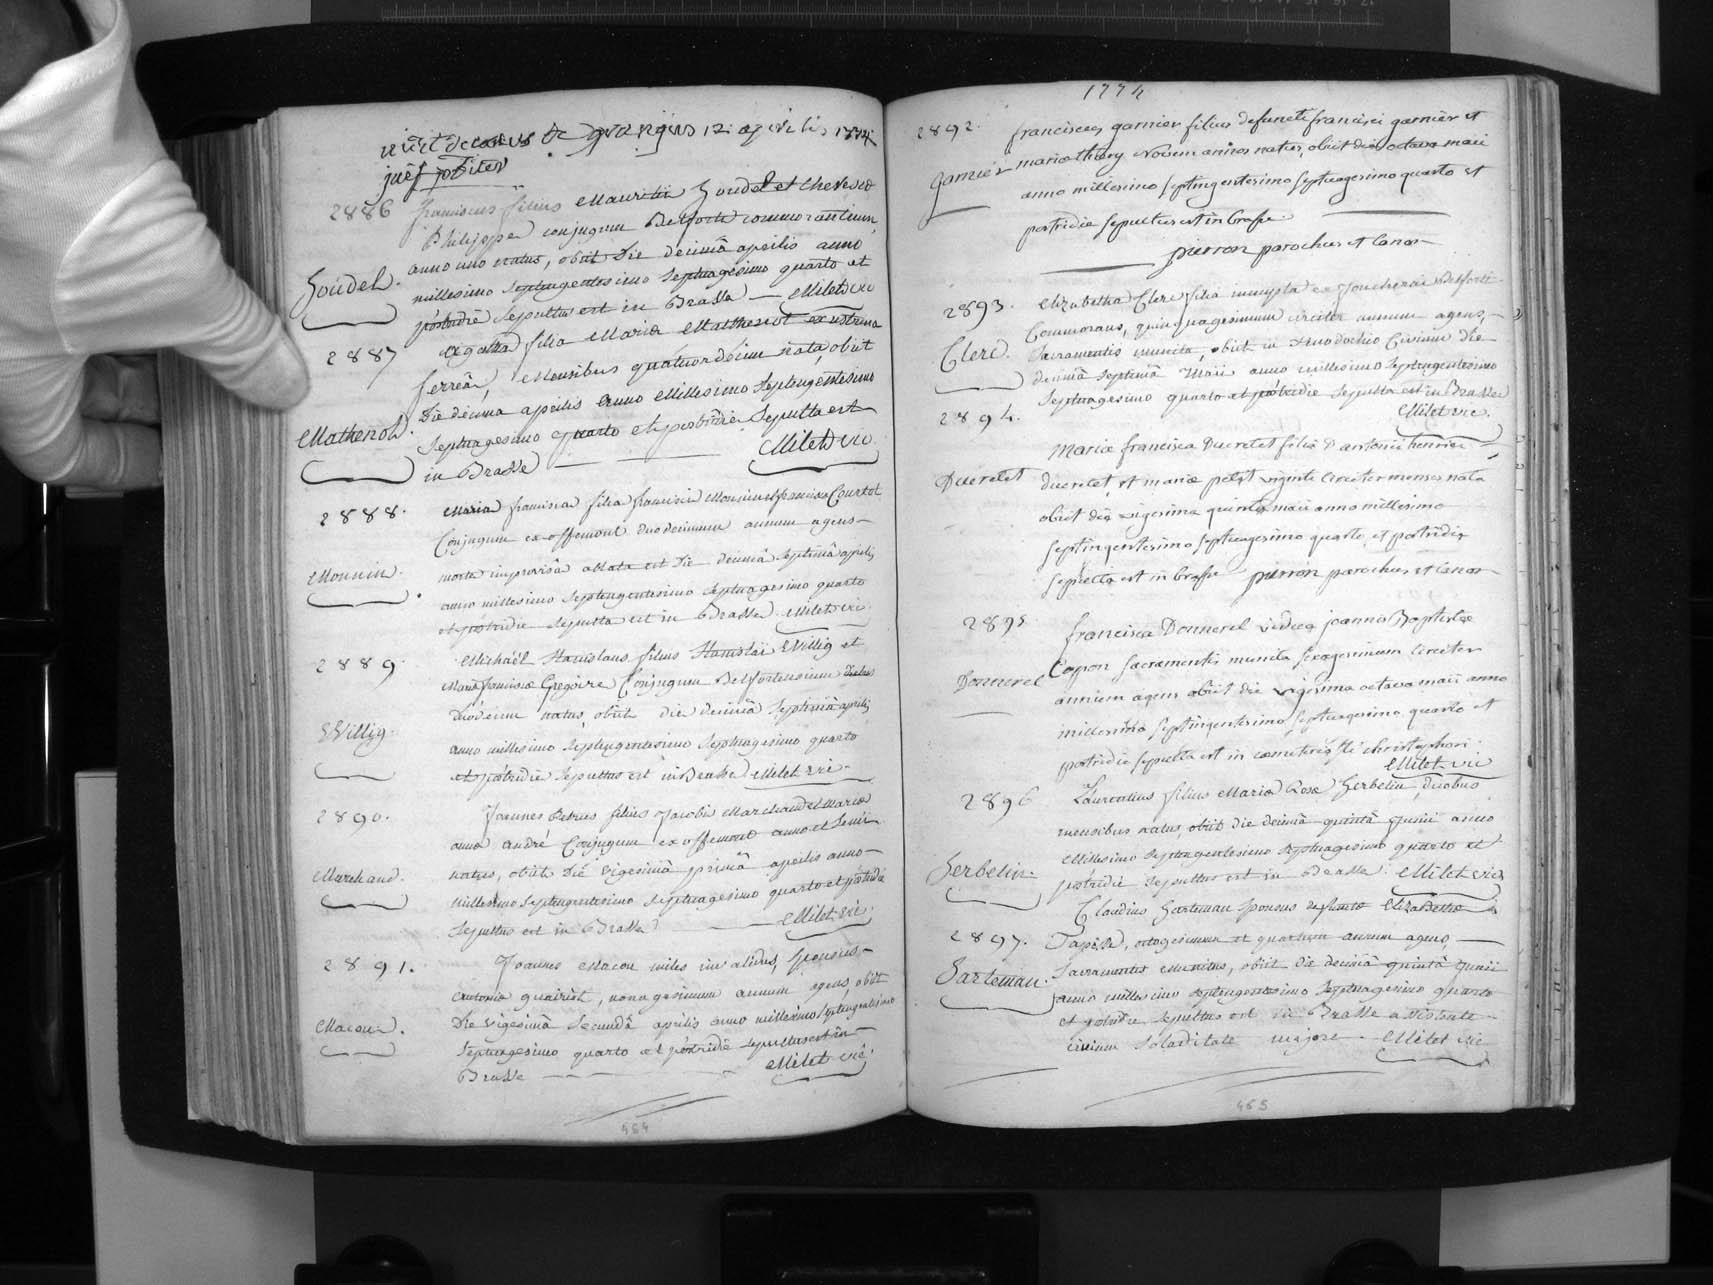 vidit decanus de granges 12 aprilis 1774
2886 franciscus filius Mauritii Houdel et Theresiæ
Philippe conjugum Belforte commorantium,
anno uno natus, obiit Die decimâ aprilis anno
Houdel.
millesimo Septengentesimo Septuagesimo quarto et
póstridie Sepultus est in Brasse Milet vic
2887 Agatha filia Mariæ Matthenot ex ustrina
ferreâ, Mensibus quatuordecim nata, obiit
Die decima aprilis Anno Millesimo Septengentesimo
Mathenot. Septuagesimo quarto et postridie Sepulta est
in Brasse Milet vic
2888. Maria francisca filia francisci Monnin et franciscæ Courtot
Conjugum ex offemont duodecimum annum agens
Monnin. morte improvisâ ablata est Die decimâ Septimâ aprilis
anno millesimo Septengentesimo septuagesimo quarto
et póstridie Sepulta est in Brasse Milet vic
2889. Michaël Stanislaus filius Stanislai Willig et
Mariæ franciscæ Gregoire Conjugum Belfortensium diebus
duodecim natus, obiit die decimâ Septimâ aprilis
Willig.
anno millesimo Septengentesimo Septuagesimo quarto
et póstridie Sepultus est in Brasse Milet vic.
2890. Joannes Petrus filius Jacobi Marchand et Mariæ
annæ andré Conjugum ex offemont anno et Semi
Marchand. natus, obiit Die vigesimâ primâ aprilis anno
millesimo Septengentesimo Septuagesimo quarto et póstridie
Sepultus est in Brasse Milet vic.
2891. Joannes Macon miles invalidus, Sponsus
antoniæ, nonagesimum annum agens, obiit
Macon. Die vigesimâ Secundâ aprilis anno millesimo Septengentesimo
Septuagesimo quarto et póstridie Sepultus est in
Brasse Milet vic.
464
1774
2892. franciscus garnier filius defuncti francisci garnier et
garnier mariæ thiery novem annos natus, obiit die octava maii
anno millesimo septingentesimo septuagesimo quarto et
postridie sepultus est in brasse.
pierron parochus et Canon
2893. Elizabetha Clerc filia innupta ex Belforti
Commorans, quinquagesimum circiter annum agens,
Clerc. Sacramentis munita, obiit in Xenodochio Civium die
decimâ Septimâ Maii anno millesimo Septengentesimo
Septuagesimo quarto et póstridie Sepulta est in Brasse
2894. Milet vic.
Maria francisca Ducretet filia D antonii henrici
Ducretet ducretet, et mariæ viginti Circiter menses nata
obiit die vigesima quinta maii anno millesimo
septingentesimo septuagesimo quarto et postridie
sepulta est in brasse pierron parochus et Canon
2895 francisca Donnerel vidua joannis Baptistæ
Donnerel Cappon sacramentis munita sexagesimum Circiter
annum agens obiit die vigesima octava maii anno
millesimo septingentesimo septuagesimo quarto et
postridie sepulta est in cœmeterio Sti christophori
Milet vic
2896 Laurentius filius Mariæ Rosæ Herbelin, duobus
mensibus natus, obiit die decimâ quintâ Junii anno
Millesimo Septengentesimo Septuagesimo quarto et
Herbelin. póstridie Sepultus est in Brasse Milet vic
Claudius Harteman Sponsus defunctæ Elizabethæ
2897. octogesimum et quartum annum agens,
Harteman. Sacramentis Munitus, obiit die decimâ quintâ Junii
anno millesimo Septengentesimo Septuagesimo quarto
et póstridie Sepultus est in Brasse assistente
civium Soladitate majore. Milet vic
465